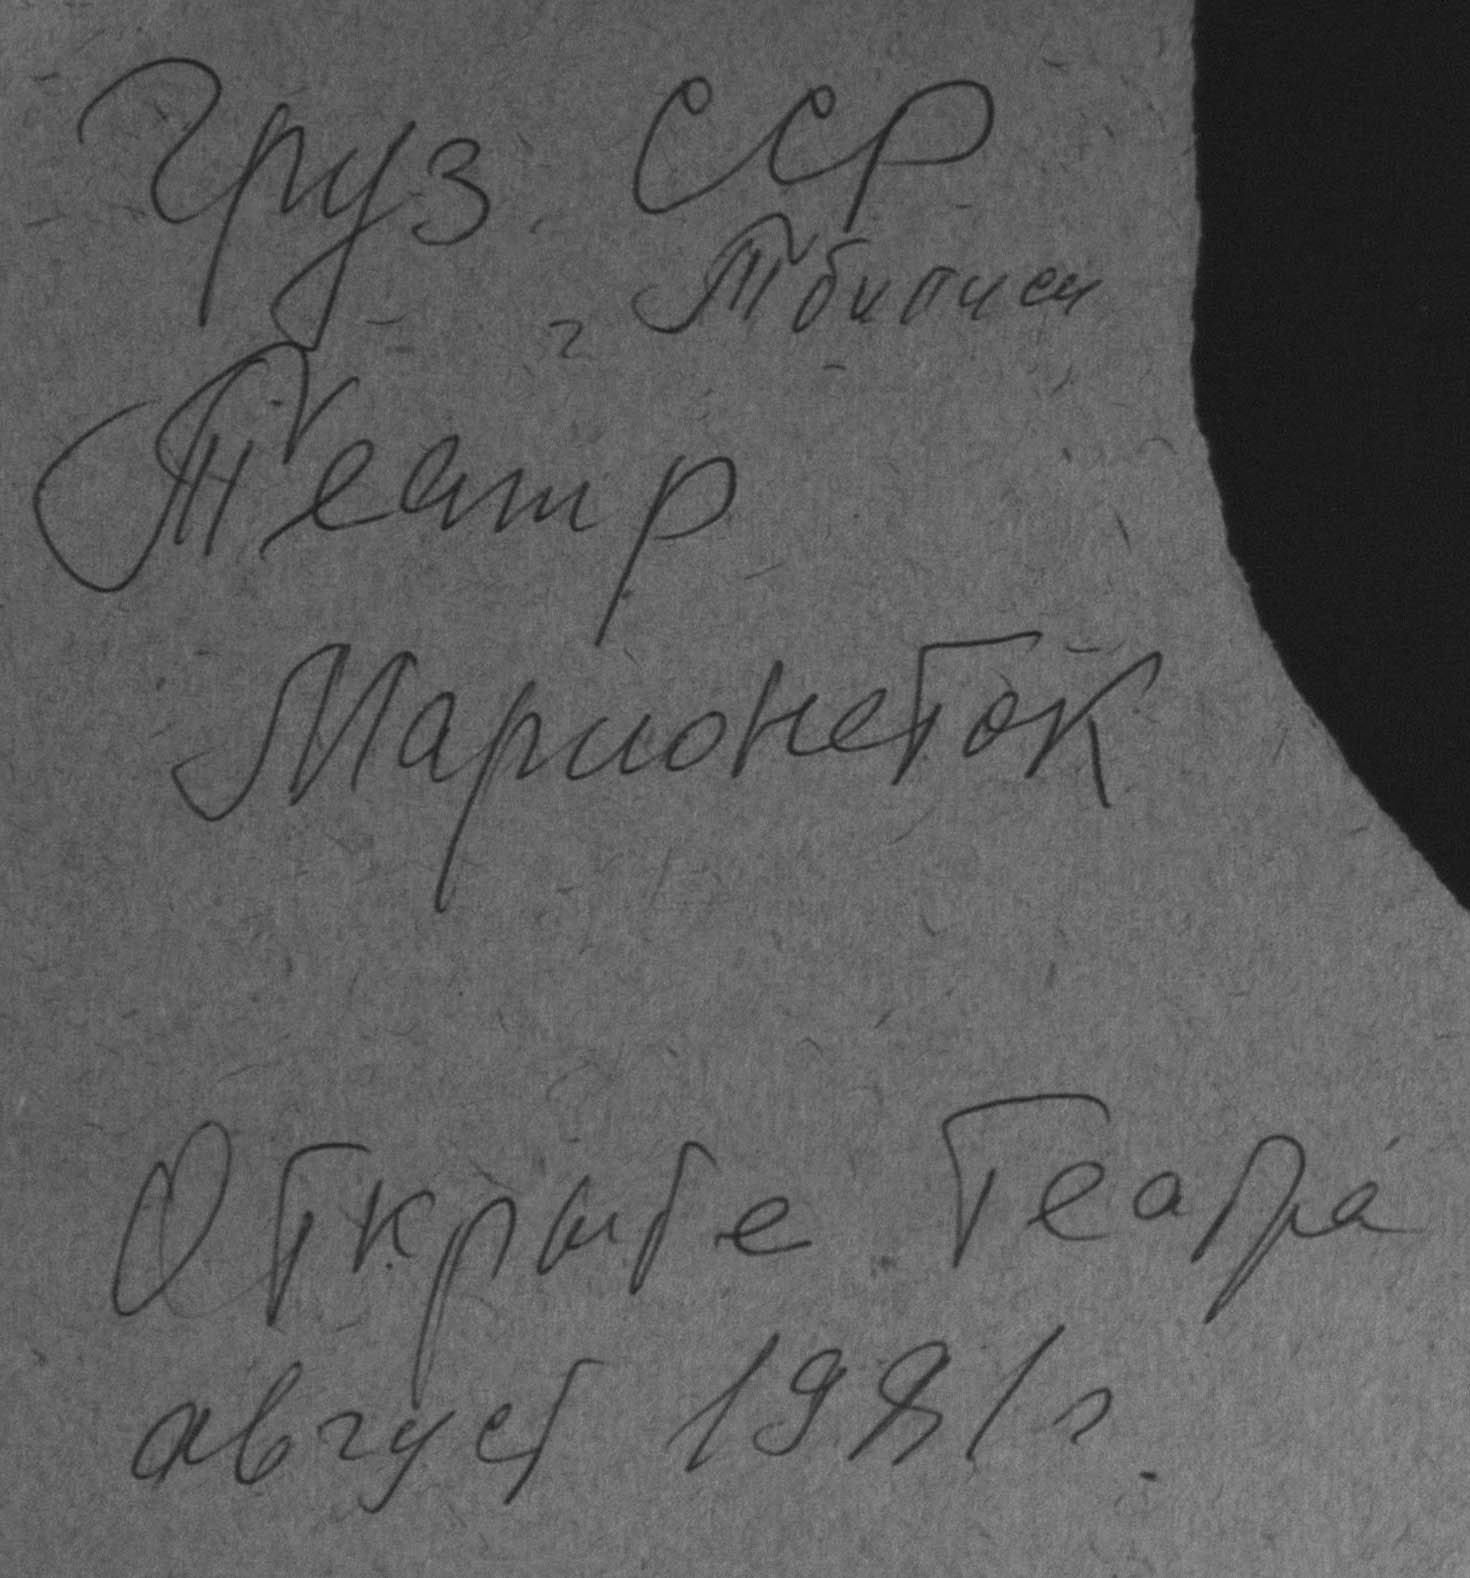 Груз. ССР
г. Тбилиси
Театр
Марионеток
Открытие театра
август 1981 г.